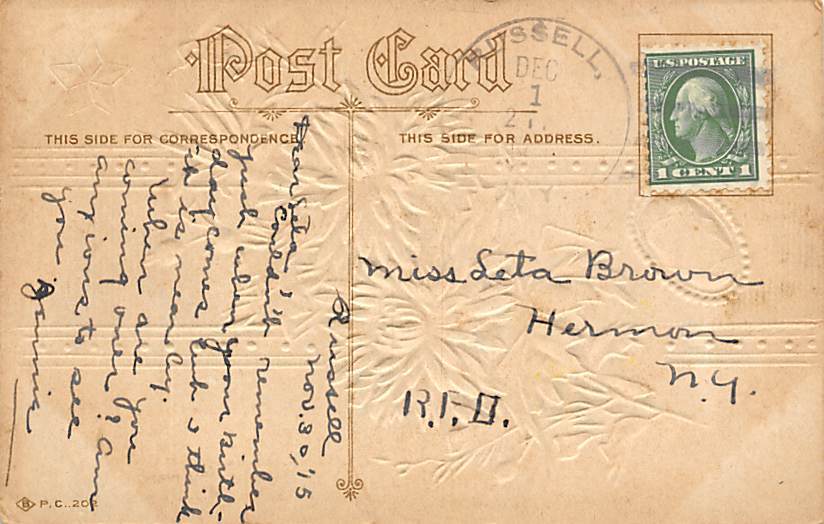 Post Card
THIS SIDE FOR CORRESPONDENCE
THIS SIDE FOR ADDRESS.
RUSSELL,
DEC
1
U.S. POSTAGE
1 CENT 1
Russell
Nov. 30, '15
Dear Leta,
Couldn't remember
just when your birth-
day comes but I think
it is near by.
When are you
coming over? Am
anxious to see
you
Jennie
Miss Leta Brown
Hermon
N.Y.
R.F.D.
B P.C..202